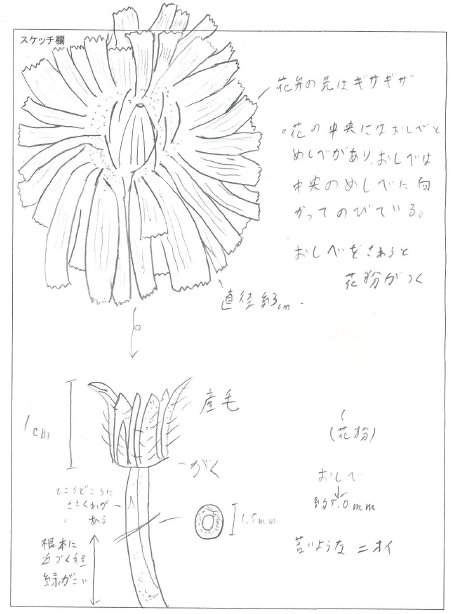 スケッチ欄
花弁の先はギザギザ
。花の中央にはおしべと
めしべがあり、おしべは
中央のめしべに向
かってのびている。
おしべをさわると
花粉がつく
直径約3cm.
1cm
産毛
がく
(花粉)
おしべ
約5.0mm
ところどころに
ささくれが
ある
1.5mm
根本に
近づく程
緑がこい
苦いような ニオイ